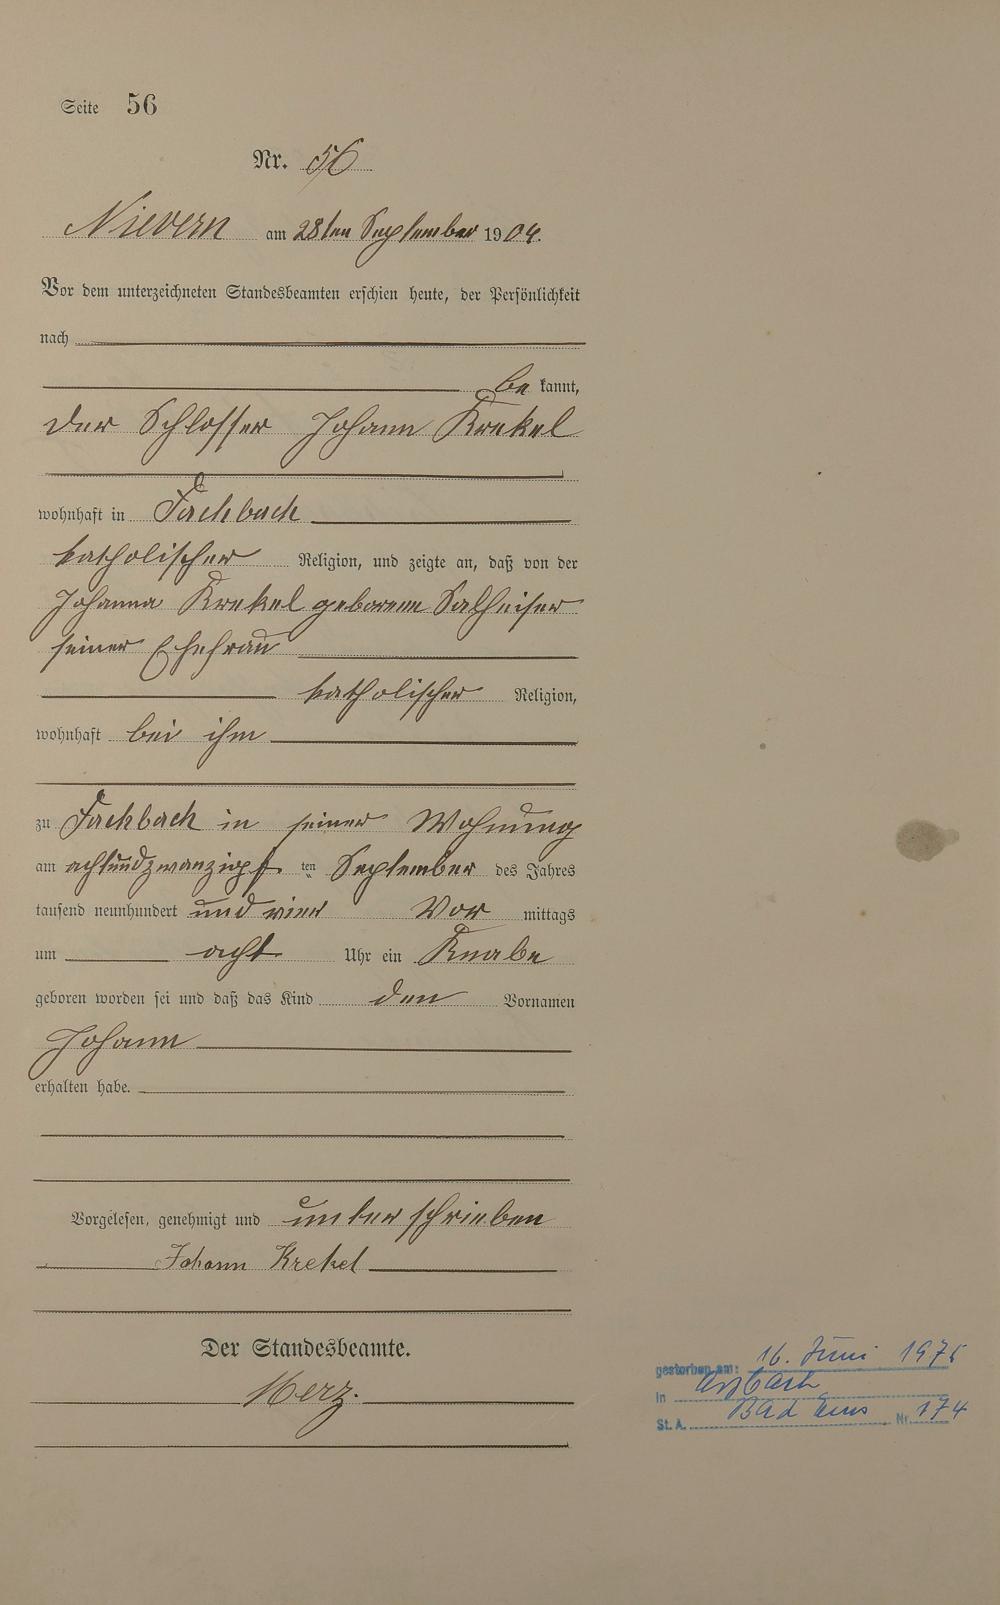 Seite 56
Nr. 56
Nievern am 28ten September 1904.
Vor dem unterzeichneten Standesbeamten erschien heute, der Persönlichkeit
nach
be kannt,
der Schlosser Johann Krekel
wohnhaft in Fachbach
katholischer Religion, und zeigte an, daß von der
Johanna Krekel geborene Salheiser
seiner Ehefrau
katholischer Religion,
wohnhaft bei ihm
zu Fachbach in seiner Wohnung
am achtundzwanzigs ten September des Jahres
tausend neunhundert und vier Vor mittags
um acht Uhr ein Knabe
geboren worden sei und daß das Kind den Vornamen
Johann
erhalten habe.
Vorgelesen, genehmigt und unterschrieben
Johann Krekel
Der Standesbeamte.
Herz.
gestorben am: 16. Juni 1975
in Arzbach
St. A. Bad Ems Nr. 174